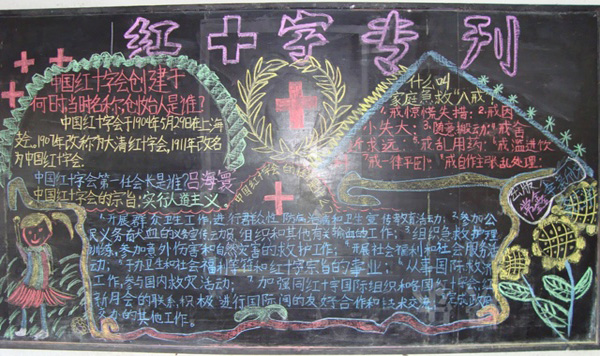 红十字专刊
中国红十字会创建于
何时,当时名称,创始人是谁?
中国红十字会于1904年5月29日在上海
1907年改称为大清红十字会,1911年改名
为中国红十字会.
中国红十字会第一任会长是谁?吕海寰
中国红十字会的宗旨:实行人道主义.
什么叫
家庭急救"八戒"
1.戒惊慌失措:2.戒因
小失大:3.随意搬动:4.戒舍
戒乱用药:戒滥进饮
戒一律平卧 戒自作主张乱处理:
1.开展群众卫生工作,进行群众性防病治病和卫生宣传教育活动;2.参加公
民义务献血的宣传动员组织和其他有关输血的工作;3.组织急救护理
训练,参加意外伤害和自然灾害的救护工作;4.开展社会福利和社会服务活
动;5.于外卫生和社会福利等符和红十字宗旨的事业;6.从事国际救济
工作,参与国内救灾活动;7.加强同红十字国际组织和各国红十字会,红
新月会的联系,积极进行国际间的友好合作和技术交流
交办的其他工作.
出版